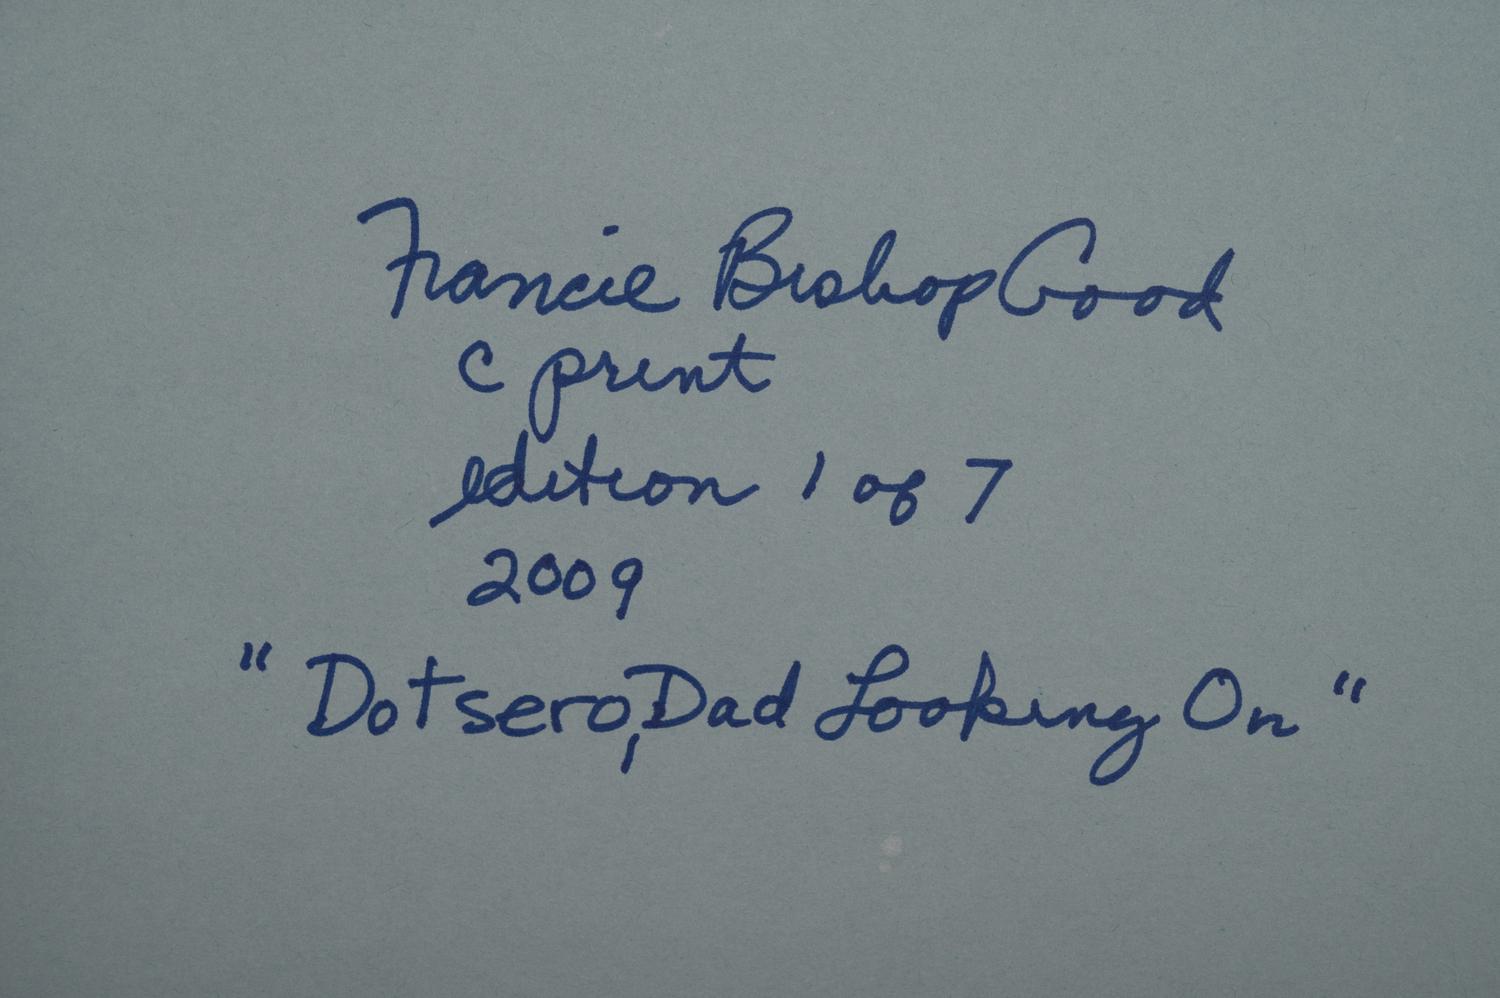 Francie Bishop Good
c print
edition 1 of 7
2009
"Dotsero, Dad Looking On"